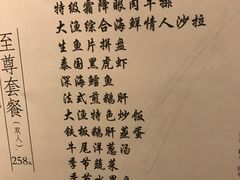 特级霜降眼肉牛排
大渔综合海鲜情人沙拉
生鱼片拼盘
泰国黑虎虾
深海鳕鱼
法式煎鹅肝
大渔特色炒饭
铁板鹅肝蒸蛋
牛尾洋葱汤
季节蔬菜
季节水果
至尊套餐
(双人)
258元